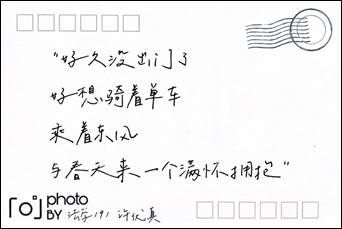 “好久没出门了
好想骑着单车
乘着东风
与春天来一个满怀拥抱”
photo
BY 法学191 许优真